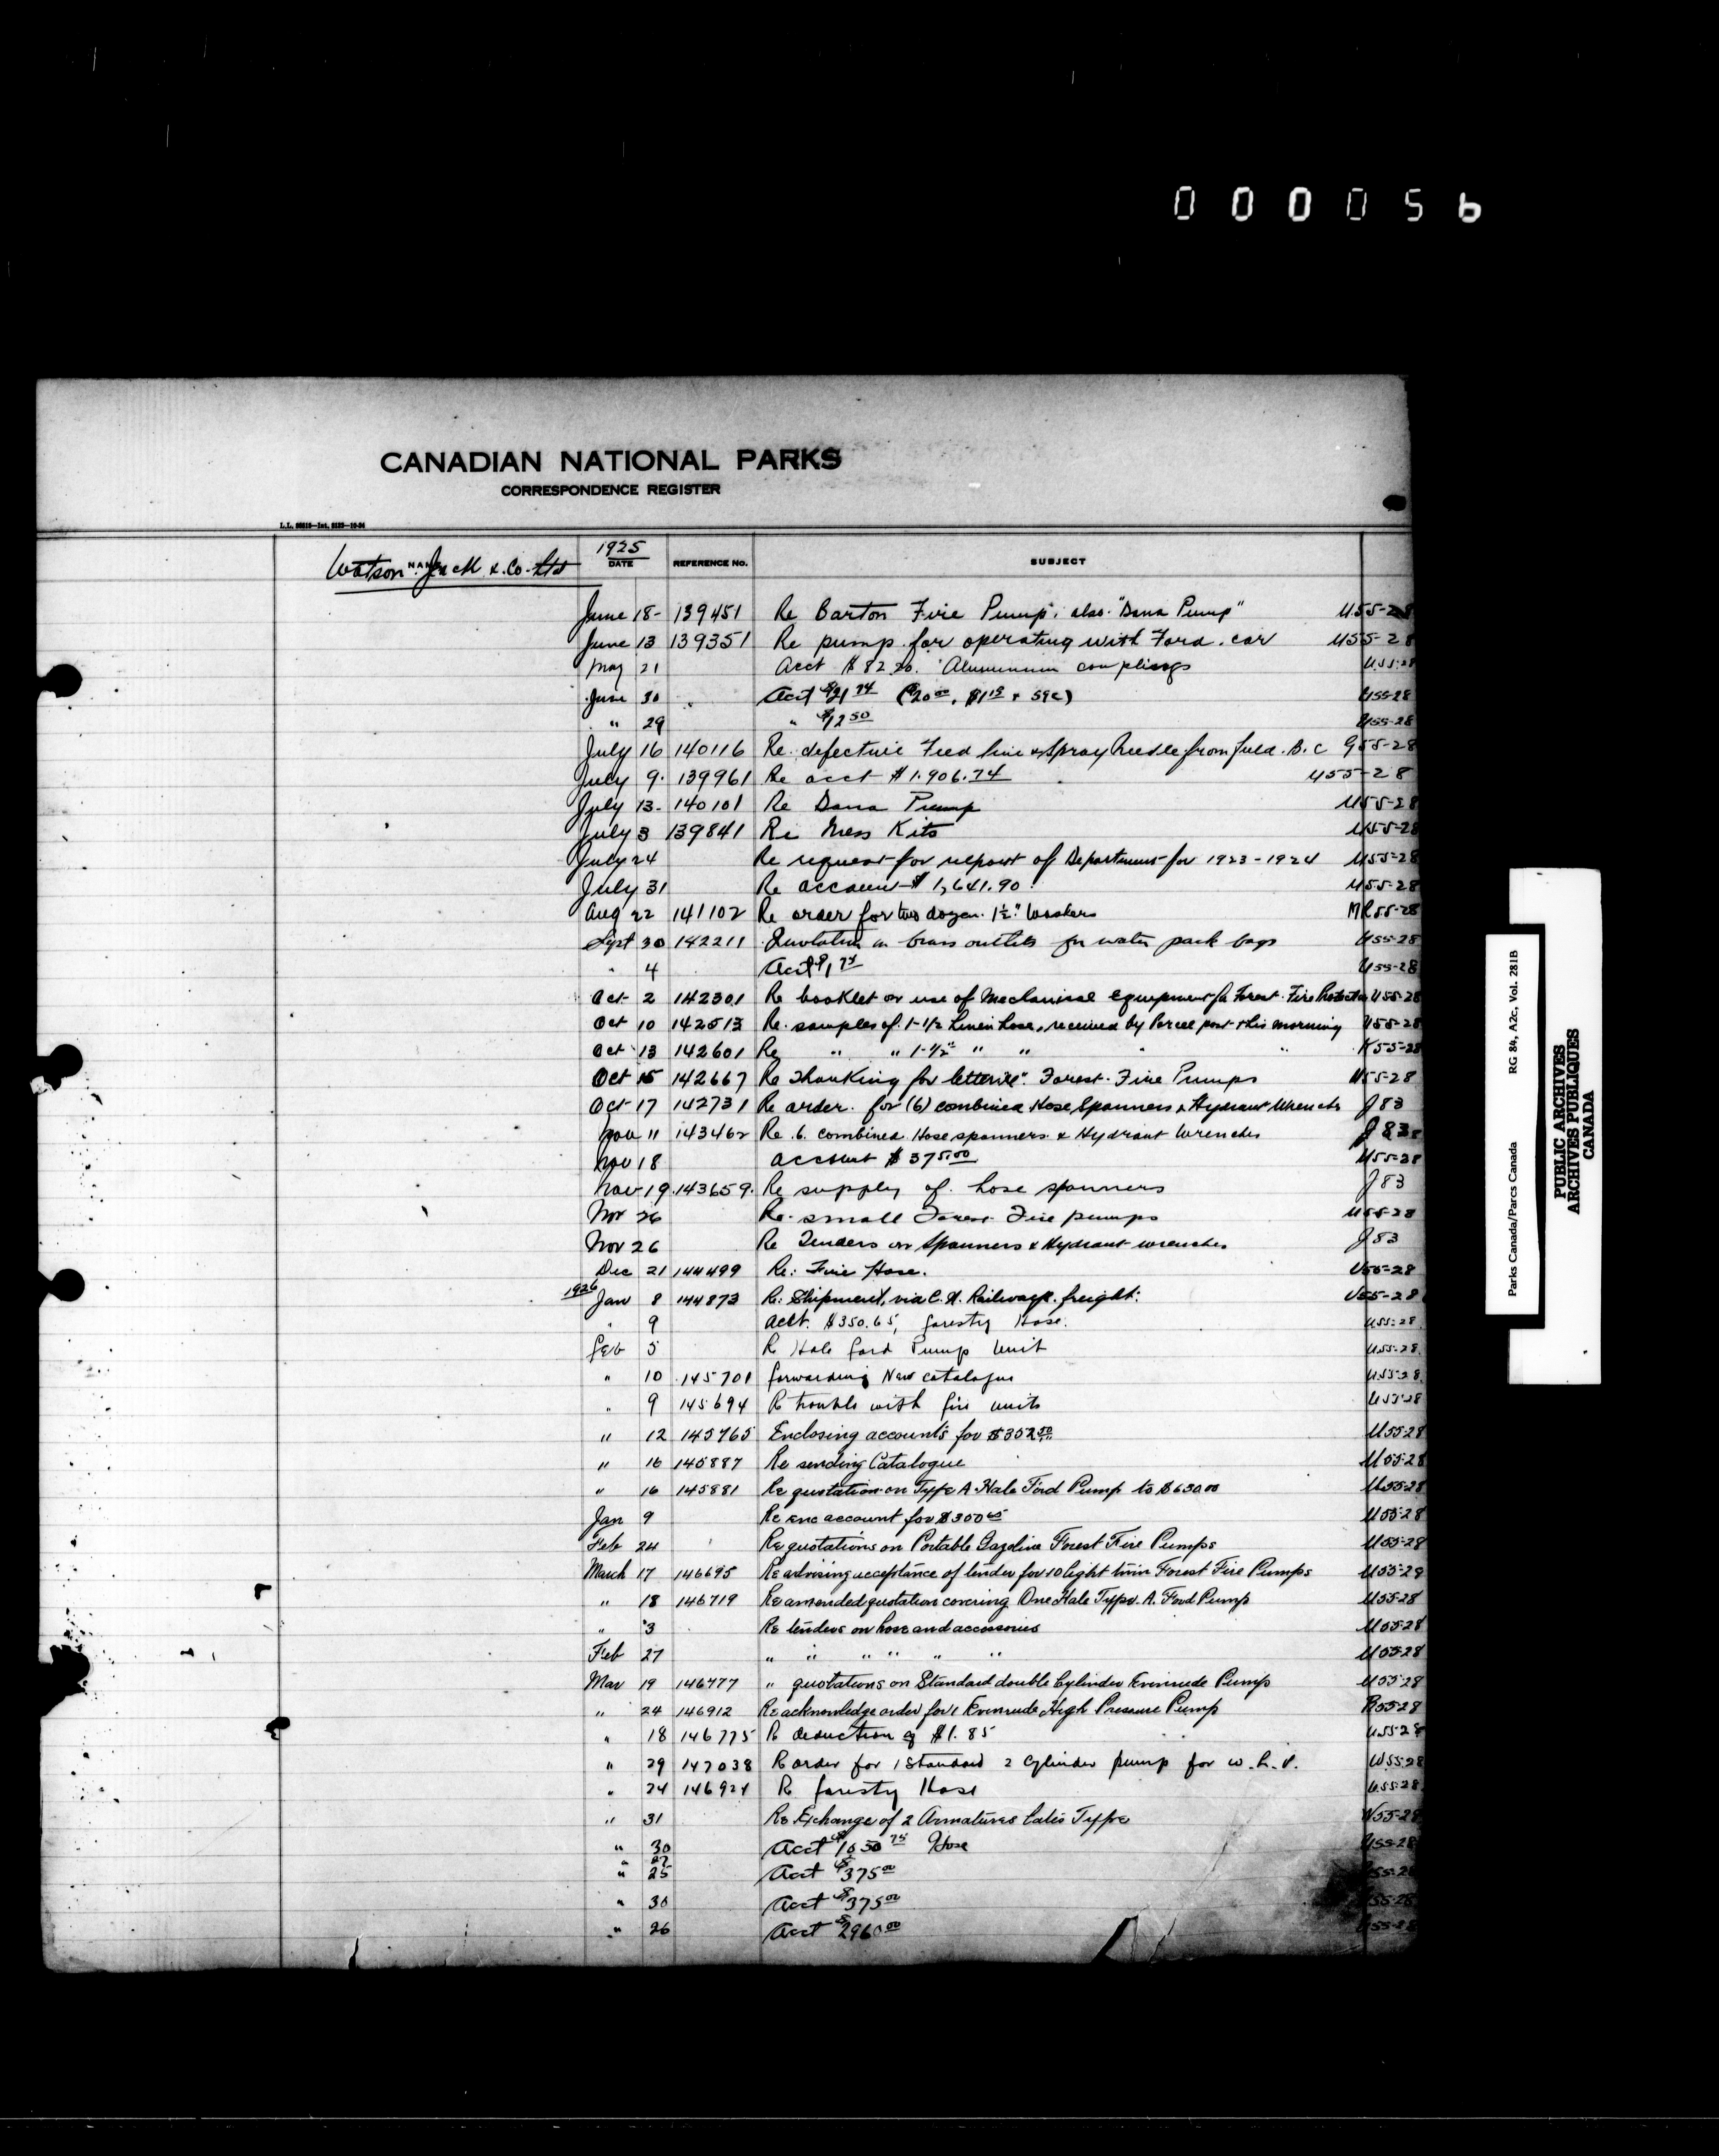 000056
CANADIAN NATIONAL PARKS
CORRESPONDENCE REGISTER
NAME
Watson Jack & Co. Ltd
1925
DATE REFERENCE No. SUBJECT
June 18- 139451 Re Barton Fire Pump, also "Dana Pump" U55-28
June 13 139351 Re pump for operating with Ford. car U55-28
May 21 Acct $82.20. Aluminum couplings U55-28
June 30 Acct $21 74 ($20 00, $1 15 + 59c) U55-28
" 29 " $12 50 U55-28
July 16 140116 Re. defective Feed line & Spray Needle from Field. B.C G55-28
July 9. 139961 Re acct $1.906.74 U55-28
July 13- 140101 Re Dana Pump U55-28
July 3 139841 Re Mess Kits U55-28
July 24 Re request for report of Department for 1923-1924 U55-28
July 31 Re account $1,641.90. U55-28
Aug 22 141102 Re order for two dozen. 1½" Washers MR55-28
Sept 30 142211 Quotation on brass outlets for water pack bags U55-28
" 4 Acct $1 75 U55-28
Oct- 2 142301 Re booklet on use of Mechanical equipment for Forest. Fire Protection U55-28
Oct 10 142513 Re. samples of. 1-1/2 linen hose, received by Parcel post this morning U55-28
Oct 13 142601 Re " " 1-½" " " " " K55-28
Oct 15 142667 Re Thanking for letter re". Forest. Fire Pumps U55-28
Oct-17 142731 Re order. for (6) combined Hose Spanners & Hydrant Wrenches J83
Nov 11 143462 Re .6. combined Hose spanners & Hydrant Wrenches J83
Nov 18 account $375.00 U55-28
Nov-19. 143659. Re supply of hose spanners J83
Nov 26 Re. small Forest Fire pumps U55-28
Nov 26 Re Tenders on Spanners & Hydrant wrenches J83
Dec 21 144499 Re: Fire Hose. U55-28
1926
Jan 8 144873 Re: Shipment, via C.N. Railways. freight: U55-28
" 9 acct. $350.65, forestry Hose. U55-28
Feb 5 R Hale ford Pump Unit U55-28
" 10 145701 forwarding New catalogue U55-28
" 9 145694 R trouble with fire units U55-28
" 12 145765 Enclosing accounts for $352 50 U55-28
" 16 145887 Re sending Catalogue U55-28
" 16 145881 Re quotation on Type A Hale Ford Pump to $650.00 U55-28
Jan 9 Re enc account for $300 65 U55-28
Feb 24 Re quotations on Portable Gazoline Forest Fire Pumps U55-28
March 17 146695 Re advising acceptance of tender for 10 light twin Forest Fire Pumps U55-28
" 18 146719 Re amended quotation covering One Hale Type. A. Ford Pump U55-28
" 3 Re tenders on hose and accessories U55-28
Feb 27 " " " " " " U55-28
Mar 19 146777 " quotations on Standard double Cylinder Evinrude Pump U55-28
" 24 146912 Re acknowledge order for 1 Evinrude High Pressure Pump R55-28
" 18 146775 R deduction of $1.85 U55-28
" 29 147038 R order for 1 Standard 2 cylinder pump for W.L.P. W55-28
" 24 146924 R forestry Hose U55-28
" 31 Re Exchange of 2 Armatures Eales Type W55-28
" 30 Acct $1050 75 Hose U55-28
" 27
" 25 Acct $375 00 U55-28
" 30 Acct $375 00 U55-28
" 26 Acct $2960 00 U55-28
Parks Canada/Parcs Canada RG 84, A2c, Vol. 281B
PUBLIC ARCHIVES
ARCHIVES PUBLIQUES
CANADA